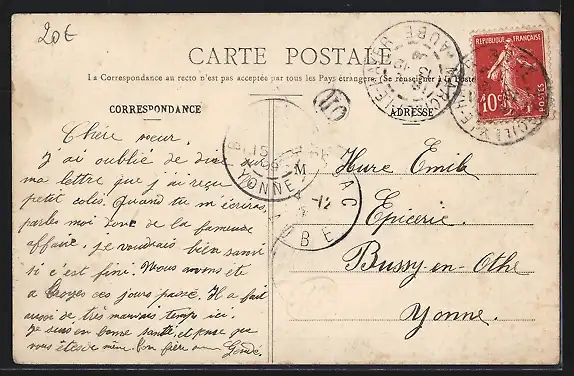 20€
CARTE POSTALE
La Correspondance au recto n'est pas acceptée par tous les Pays étrangers. (Se renseigner à la Poste
CORRESPONDANCE
ADRESSE
REPUBLIQUE FRANÇAISE
10c
POSTES
AUBE
YONNE
M
Chère sœur.
J'ai oublié de dire sur
ma lettre que j'ai reçu
petit colis. Quand tu m'écriras
parles moi donc de la fameuse
affaire. je voudrais bien savoir
si c'est fini. Nous avons été
a Troyes ces jours passé. Il a fait
aussi de très mauvais temps ici.
Je suis en bonne santé, et pense que
vous êtes de même. Ton frère
Hure Emile
Epicerie.
Bussy-en-Othe
Yonne.